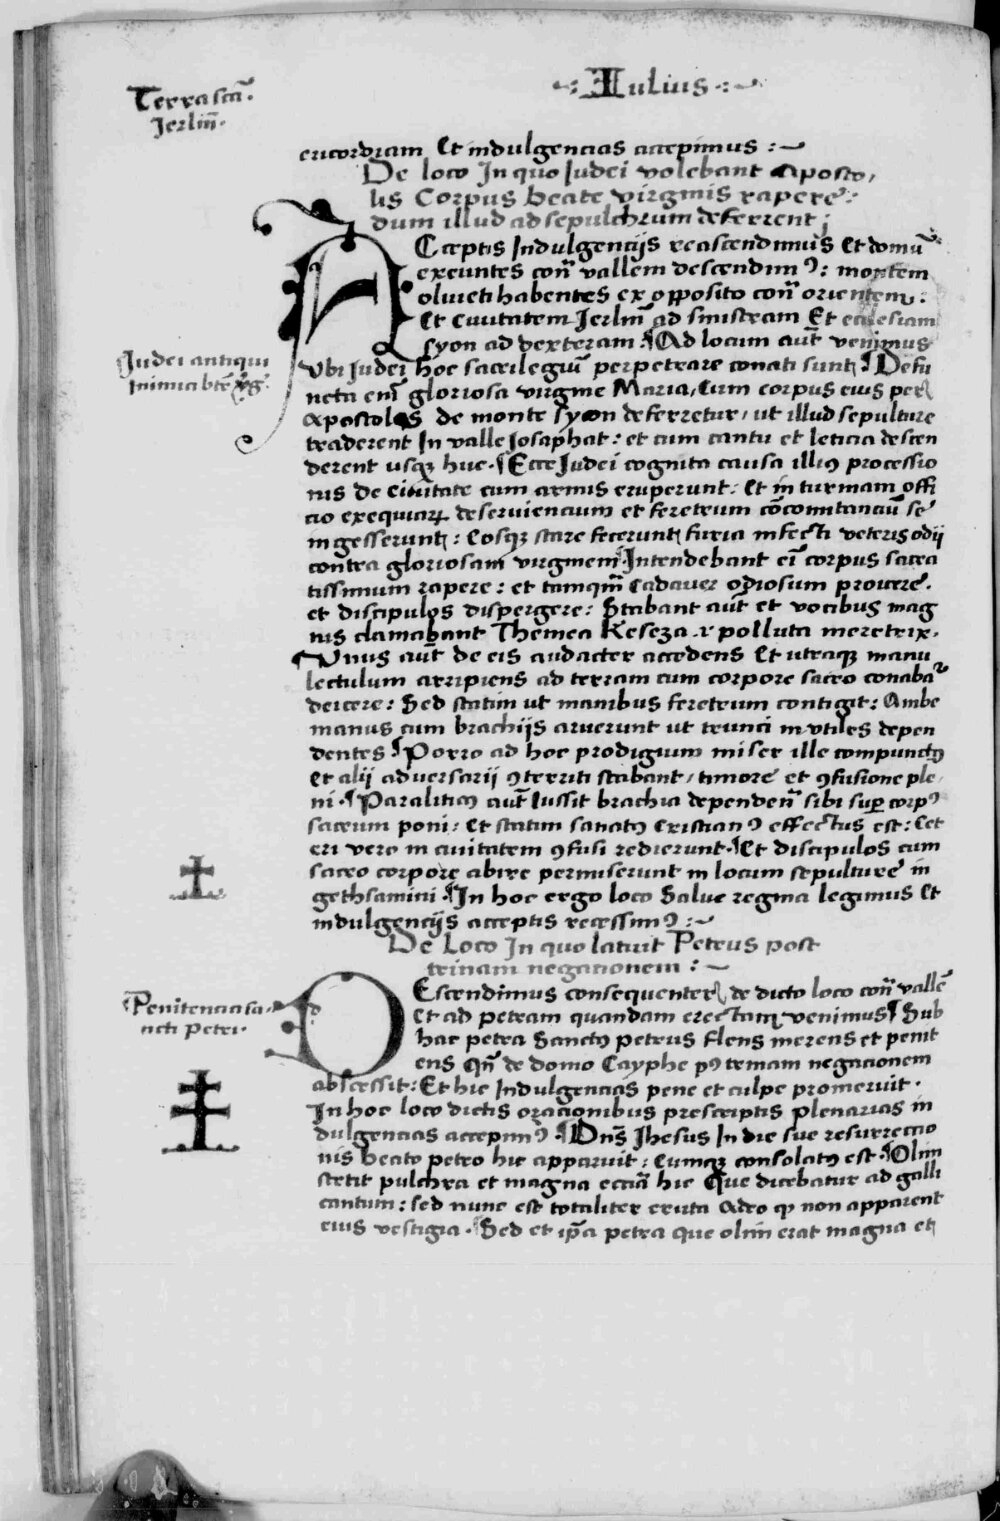 Iulius
Terra sctā.
Jerlm̄.
ericordiam Et indulgencias accepimus :~
De loco In quo Judei volebant Aposto,
lis Corpus beate virginis rapere:
dum illud ad sepulchrum deferrent;
ACceptis Indulgencijs reascendimus Et domū
exeuntes con̄ vallem descendimꝰ: montem
oliueti habentes ex opposito con̄ orientem:
Et Ciuitatem Jerlm̄ ad sinistram Et ecclesiam
syon ad dexteram. ¶Ad locum aut̄ venimus
Judei antiqui
inimici bt̄e v̄ḡ.
vbi Judei hoc sacrilegiū perpetrare conati sunt: ¶Defu
ncta em̄ gloriosa virgine Maria, Cum corpus eius per
Apostolos de monte syon deferretur, ut illud sepulture
traderent In valle Josaphat: et cum cantu et leticia descen
derent usqꝫ huc. ¶Ecce Judei cognita causa illiꝰ processio
nis de Ciuitate cum armis eruperunt: Et in turmam offi
cio exequiaꝝ deseruiencium et feretrum cōcomitanciū se
ingesserunt: Eosqꝫ stare fecerunt, furia infecti veteris odij
contra gloriosam virginem. Intendebant em̄ corpus sacra
tissimum rapere: et tamqm̄ Cadauer odiosum proicere.
et discipulos dispergere: Stabant aut̄ et vocibus mag
nis clamabant Themea Keseza .r. polluta meretrix.
Vnus aut̄ de eis audacter accedens Et utraqꝫ manu
lectulum arripiens ad terram cum corpore sacro conabat᷑
deicere: Sed statim ut manibus feretrum contigit: Ambe
manus cum brachijs aruerunt ut trunci inutiles depen
dentes. ¶Porro ad hoc prodigium miser ille compunctꝰ
Et alij aduersarij ꝯterriti stabant, timore et ꝯfusione ple,
ni. ¶Paraliticꝰ aut̄ Iussit brachia dependen̄ sibi suꝑ corpꝰ
sacrum poni: Et statim sanatꝰ Cristianꝰ effectus est: Cet
eri vero in ciuitatem ꝯfusi redierunt. ¶Et discipulos cum
sacro corpore abire permiserunt in locum sepulture in
gethsamini. ¶In hoc ergo loco Salue regina legimus Et
indulgencijs acceptis recessimꝰ :~
De Loco In quo latuit Petrus post
trinam negacionem :~
DEscendimus consequenter de dicto loco con̄ vallē
Penitencia sa,
ncti petri.
Et ad petram quandam erectam venimus ¶Sub
hac petra Sanctꝰ petrus flens merens et penit
ens qn̄ de domo Cayphe pꝰ trinam negacionem
abscessit: Et hic Indulgencias pene et culpe promeruit.
In hoc loco dictis oracionibus prescriptis plenarias in
dulgencias accepimꝰ. ¶Dn̄s Jhesus In die sue resurrectio
nis beato petro hic apparuit: Eumqꝫ consolatꝰ est. ¶Olim
stetit pulchra et magna eccia hic Que dicebatur ad galli
cantum: sed nunc est totaliter eruta Adeo ꝙ non apparent
eius vestigia. ¶Sed et ip̄a petra que olim erat magna et